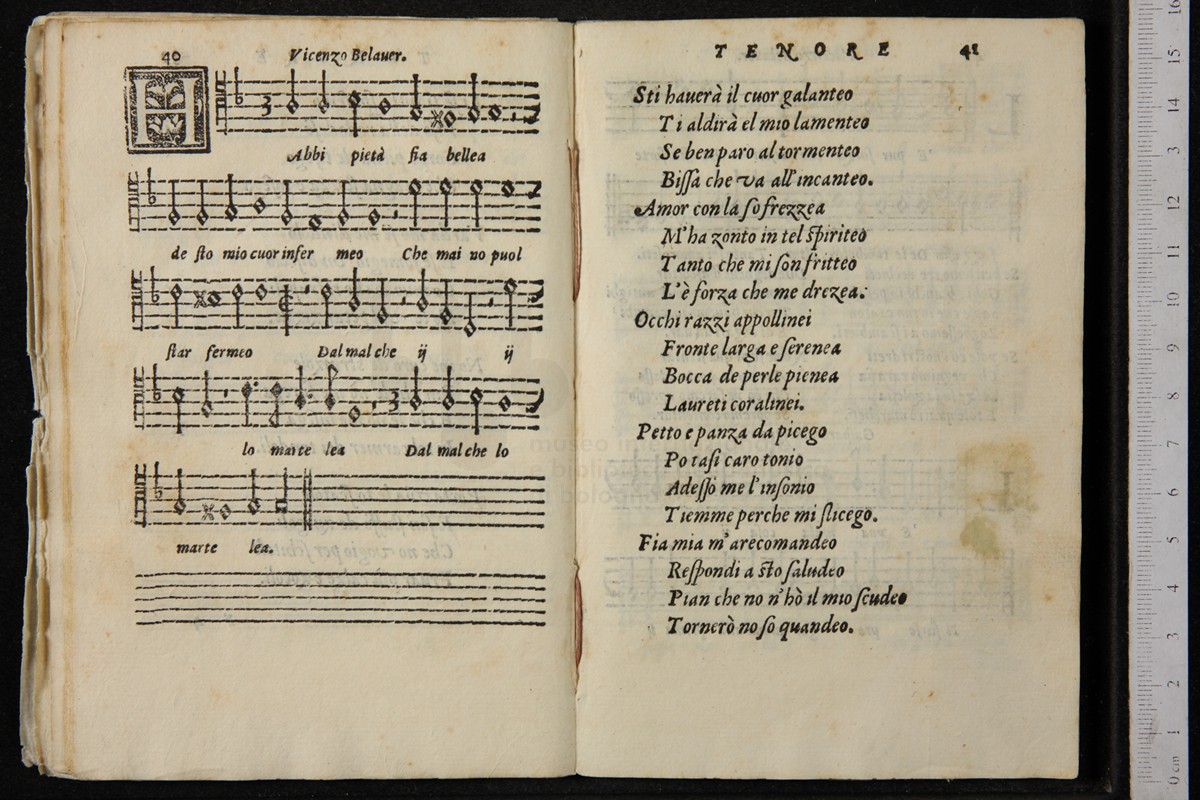 40
Vicenzo Belauer.
Abbi pietà fia bellea
de sto mio cuor infer meo Che mai no puol
star fermeo Dal mal che ij ij
lo marte lea Dal mal che lo
marte lea.
TENORE 41
Sti hauerà il cuor galanteo
Ti aldirà el mio lamenteo
Se ben paro al tormenteo
Bissa che va all' incanteo.
Amor con la so frezzea
M'ha zonto in tel spiriteo
Tanto che mi son fritteo
L'è forza che me drezea:
Occhi razzi appollinei
Fronte larga e serenea
Bocca de perle pienea
Laureti coralinei.
Petto e panza da picego
Po tasi caro tonio
Adesso me l'insonio
Tiemme perche mi slicego.
Fia mia m'arecomandeo
Respondi a sto saludeo
Pian che no n'hò il mio scudeo
Tornerò no so quandeo.